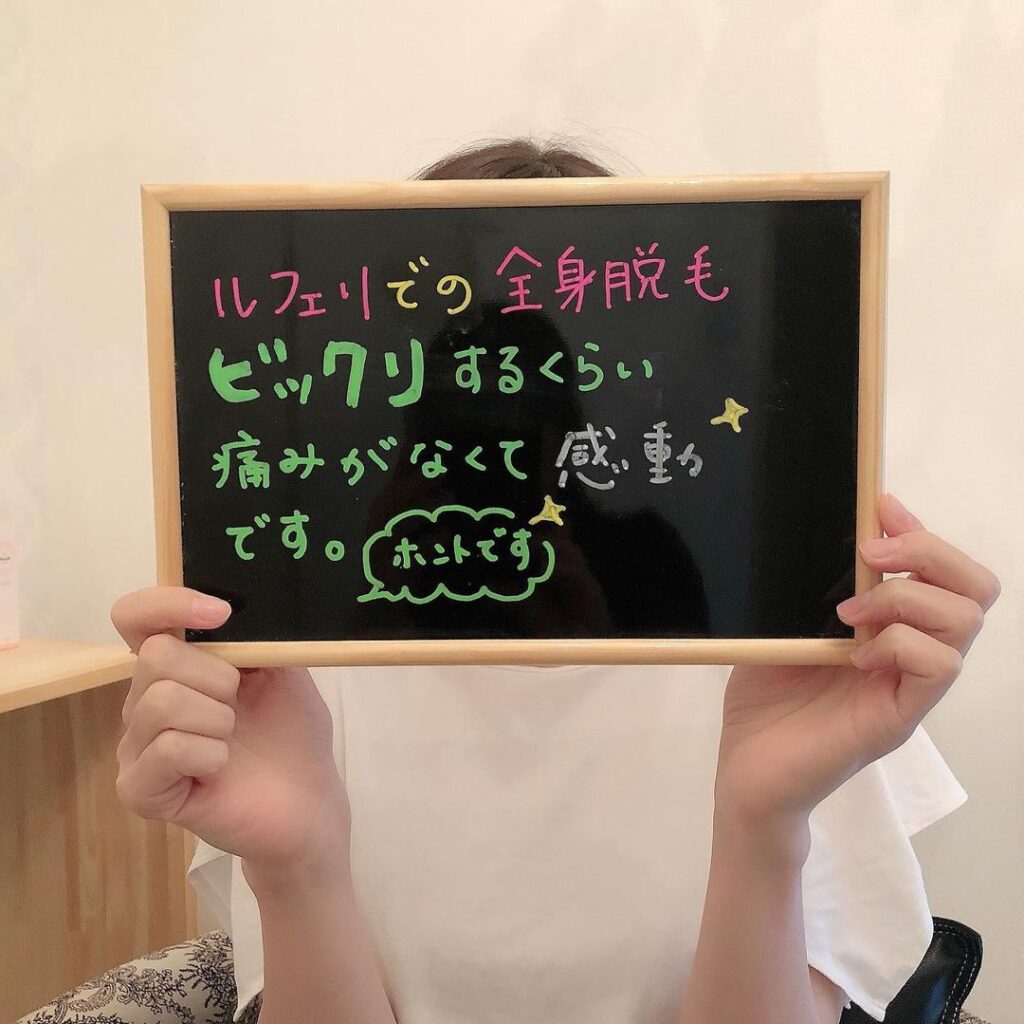 ルフェリでの全身脱毛
ビックリするくらい
痛みがなくて感動
です。
ホントです